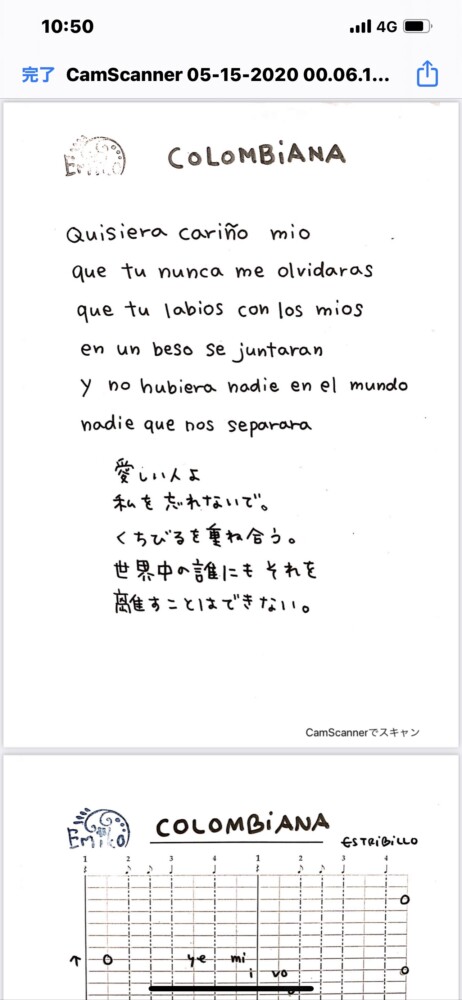 10:50
4G
完了 CamScanner 05-15-2020 00.06.1...
EMIKO COLOMBiANA
Quisiera cariño mio
que tu nunca me olvidaras
que tu labios con los mios
en un beso se juntaran
y no hubiera nadie en el mundo
nadie que nos separara
愛しい人よ
私を忘れないで。
くちびるを重ね合う。
世界中の誰にもそれを
離すことはできない。
CamScannerでスキャン
EMIKO COLOMBiANA
ESTRiBiLLO
1 2 3 4 1 2 3 4
o ye mi
i vo